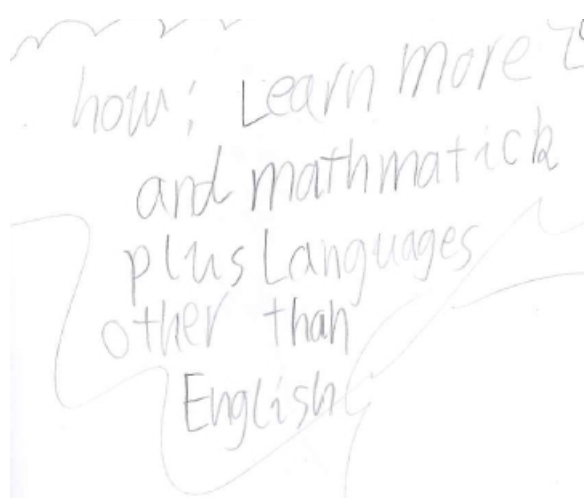 how: Learn more
and mathmatick
plus Languages
other than
English